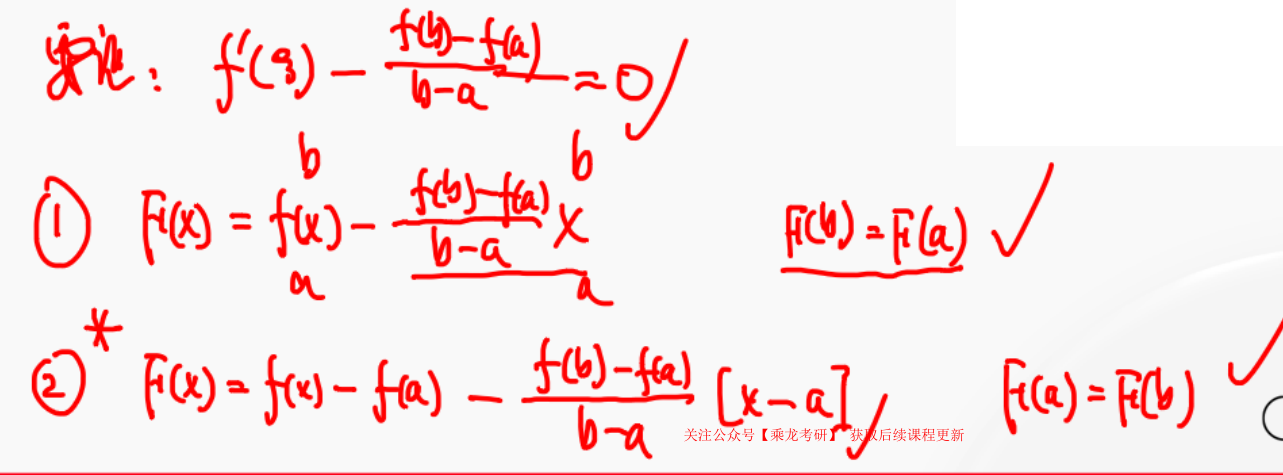 要证： f'(ξ) − \frac{f(b)−f(a)}{b−a} = 0
b b
① F(x) = f(x) − \frac{f(b)−f(a)}{b−a} x F(b) = F(a) ✓
a a
②* F(x) = f(x) − f(a) − \frac{f(b)−f(a)}{b−a} [x−a] F(a) = F(b) ✓
关注公众号【乘龙考研】 获取后续课程更新